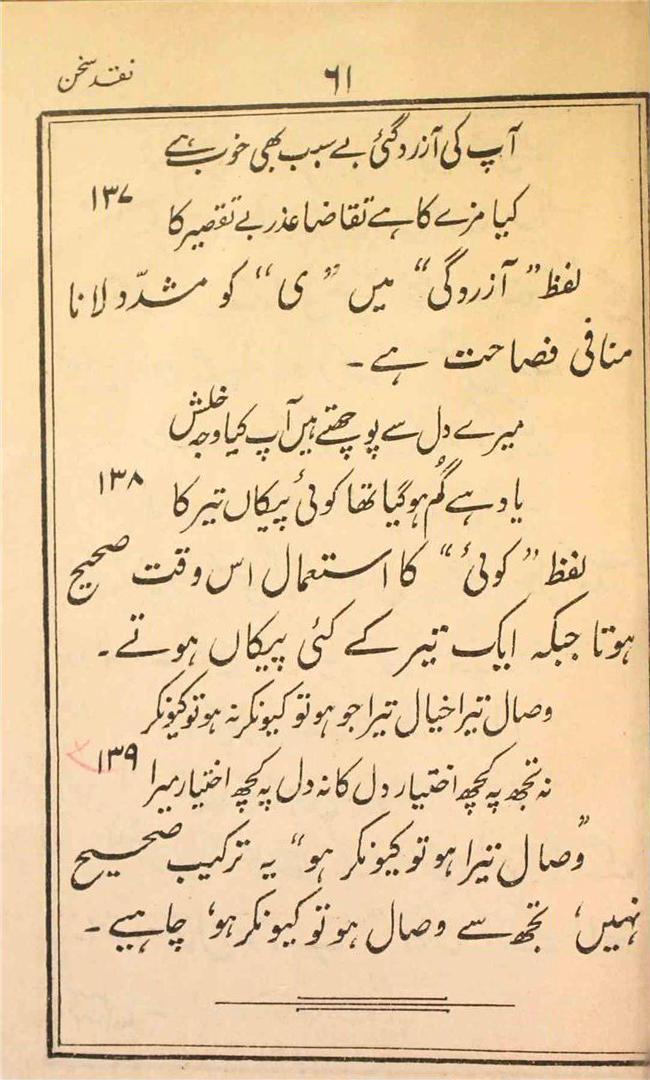 نقد سخن
۶۱
آپ کی آزردگئی بے سبب بھی خوب ہے
کیا مزے کا ہے تقاضا عذر بے تقصیر کا ۱۳۷
لفظ ”آزروگی“ میں ”ی“ کو مشدّد لانا
منافی فصاحت ہے۔
میرے دل سے پوچھتے ہیں آپ کیا وجہ خلش
یاد ہے گُم ہو گیا تھا کوئی پیکاں تیر کا ۱۳۸
لفظ ”کوئی“ کا استعمال اس وقت صحیح
ہوتا جبکہ ایک تیر کے کئی پیکاں ہوتے۔
وصال تیرا خیال تیرا جو ہو تو کیونکر نہ ہو تو کیونکر
نہ تجھ پہ کچھ اختیار دل کا نہ دل پہ کچھ اختیار میرا ۱۳۹
”وصال تیرا ہو تو کیونکر ہو“ یہ ترکیب صحیح
نہیں، تجھ سے وصال ہو تو کیونکر ہو، چاہیے۔